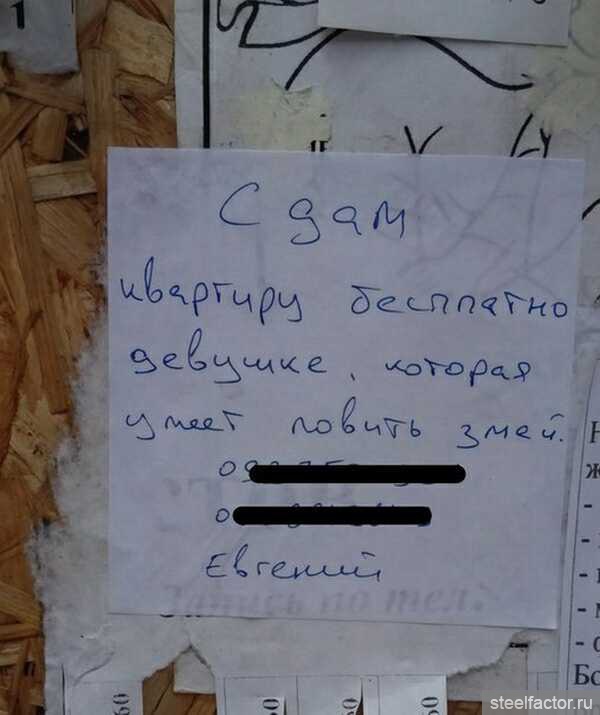 1
Сдам
квартиру бесплатно
девушке, которая
умеет ловить змей.
Евгений
Запись по тел.:
steelfactor.ru